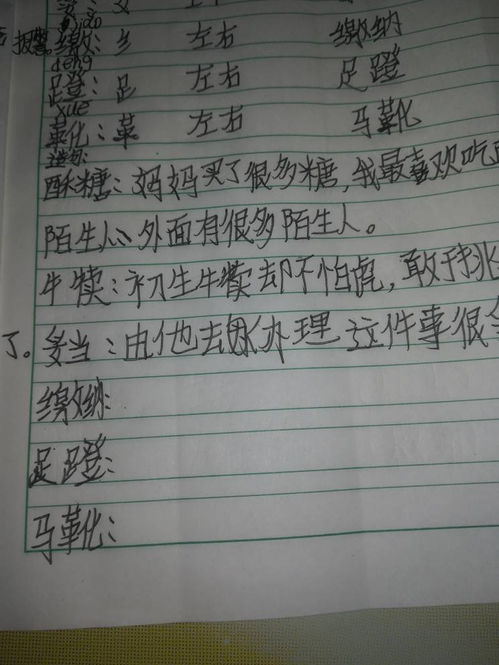 jiǎo
报警 缴：纟 左右 缴纳
dèng
蹬：足 左右 足蹬
xuē
靴：革 左右 马靴
造句
酥糖：妈妈买了很多糖，我最喜欢吃
陌生人：外面有很多陌生人。
牛犊：初生牛犊却不怕虎，敢于挑
了。妥当：由他去办理这件事很
缴纳：
足蹬：
马靴：